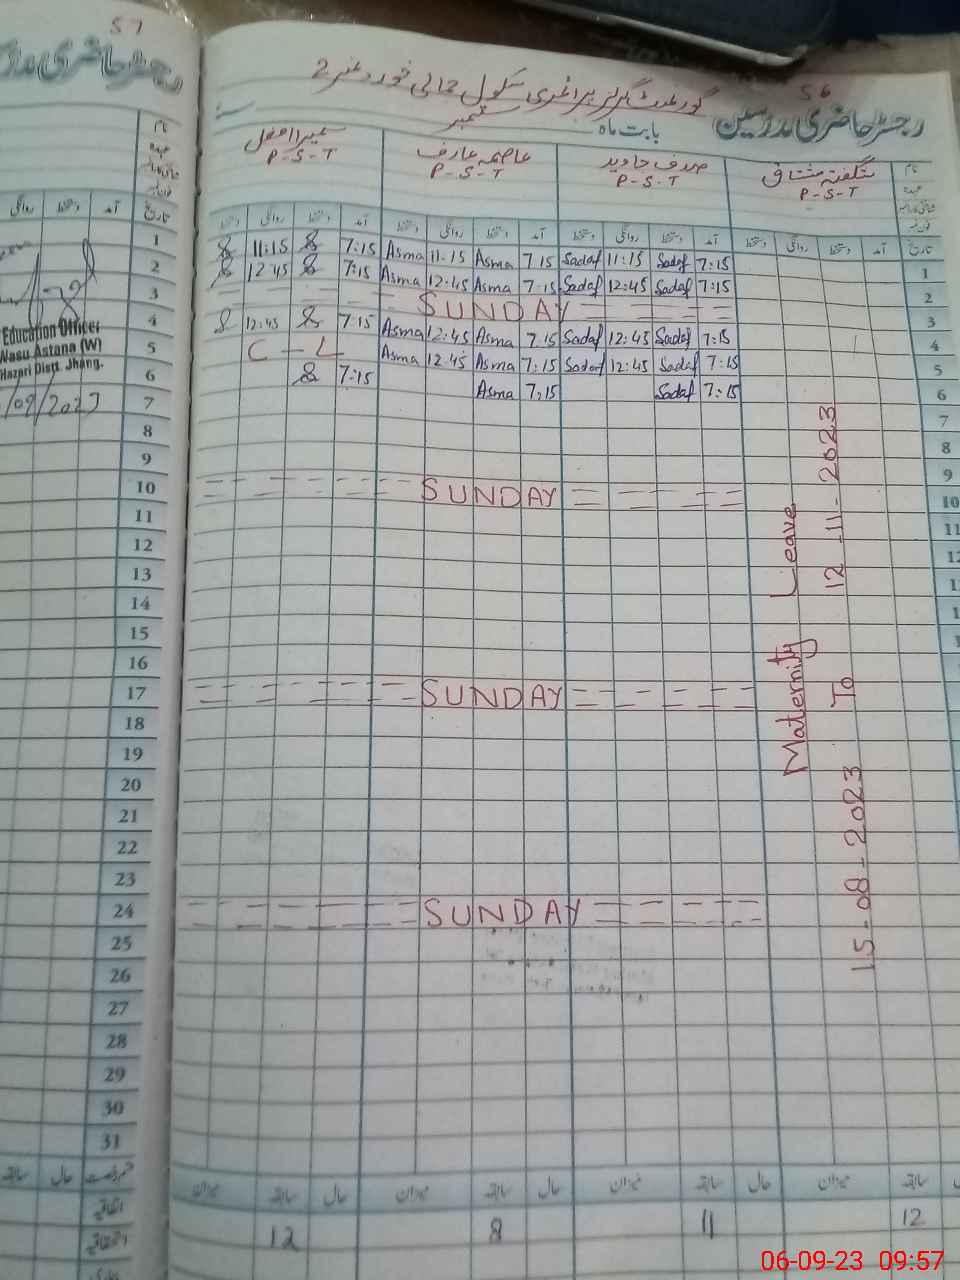 57
56
رجسٹر حاضری مدرسین
گورنمنٹ گرلز پرائمری سکول حمالی خورد نمبر 2
بابت ماہ ستمبر
شگفتہ مشتاق P-S-T
صدف جاوید P-S-T
عاصمہ عارف P-S-T
سمیرا افضل P-S-T
نام
عہدہ
تاریخ آمد دستخط روانگی دستخط آمد دستخط روانگی دستخط آمد دستخط روانگی دستخط آمد دستخط روانگی دستخط
1 7:15 Sadaf 11:15 Sadaf 7:15 Asma 11:15 Asma 7:15 11:15
2 7:15 Sadaf 12:45 Sadaf 7:15 Asma 12:45 Asma 7:15 12:45
3 SUNDAY
4 7:15 Sadaf 12:45 Sadaf 7:15 Asma 12:45 Asma 7:15 12:45
5 7:15 Sadaf 12:45 Sadaf 7:15 Asma 12:45 Asma C - L
6 7:15 Sadaf 7:15 Asma 7:15
7
8
9
10 SUNDAY
11
12
13
14
15
16
17 SUNDAY
18
19
20
21
22
23
24 SUNDAY
25
26
27
28
29
30
31
Maternity Leave
15-08-2023 To 12-11-2023
سابقہ میزان حال سابقہ میزان حال سابقہ میزان حال سابقہ میزان
12 11 8 12
رجسٹر حاضری مدر
نام
عہدہ
تاریخ آمد دستخط روانگی
Education Officer
Wasu Astana (W)
Hazari Distt. Jhang.
/09/2023
حال سابقہ
اتفاقیہ
06-09-23 09:57